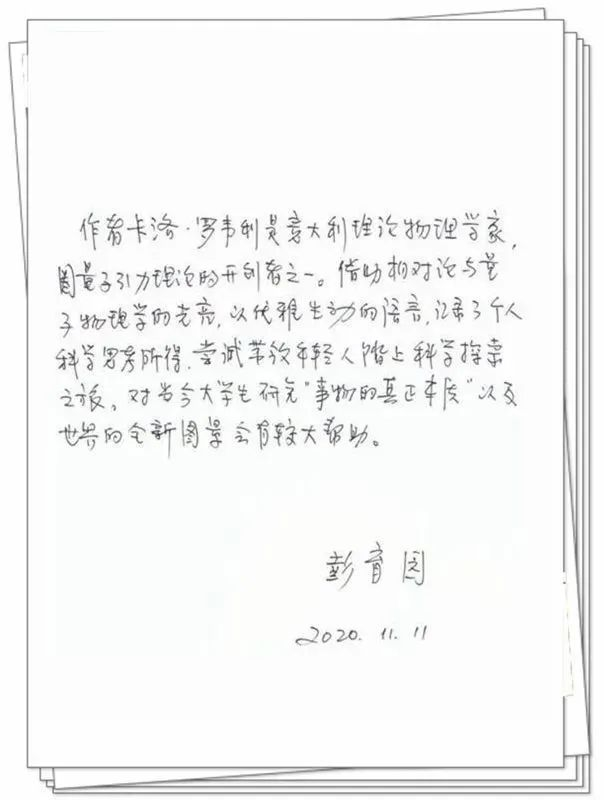 作者卡洛·罗韦利是意大利理论物理学家,
圈量子引力理论的开创者之一。借助相对论与量
子物理学的光亮,以优雅生动的语言,记录了个人
科学思考所得,尝试带领年轻人踏上科学探索
之旅。对当今大学生研究“事物的真正本质”以及
世界的全新图景会有较大帮助。
彭育园
2020.11.11